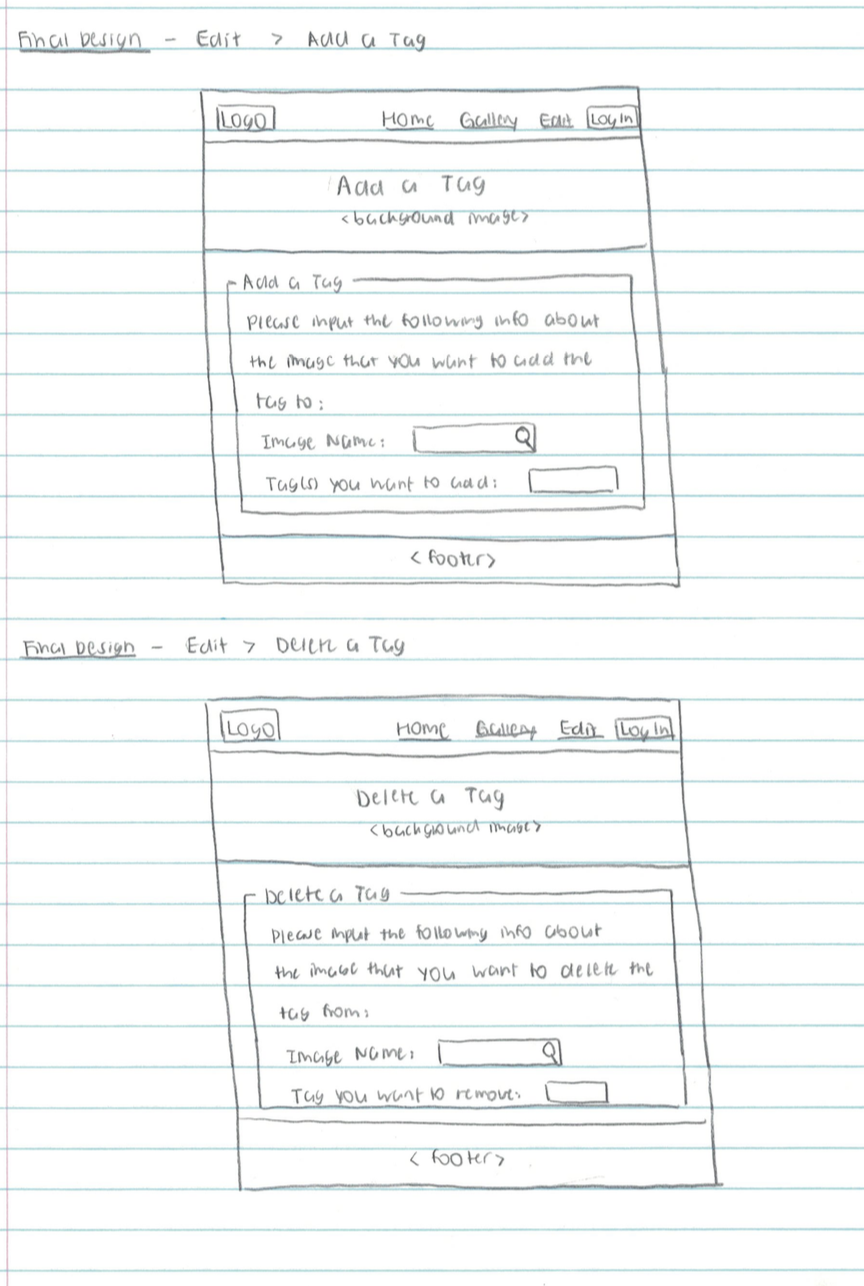 Final Design - Edit > Add a Tag
Logo Home Gallery Edit Log In
Add a Tag
<background image>
Add a Tag
Please input the following info about
the image that you want to add the
tag to:
Image Name:
Tag(s) you want to add:
<footer>
Final Design - Edit > Delete a Tag
Logo Home Gallery Edit Log In
Delete a Tag
<background image>
Delete a Tag
Please input the following info about
the image that you want to delete the
tag from:
Image Name:
Tag you want to remove:
<footer>